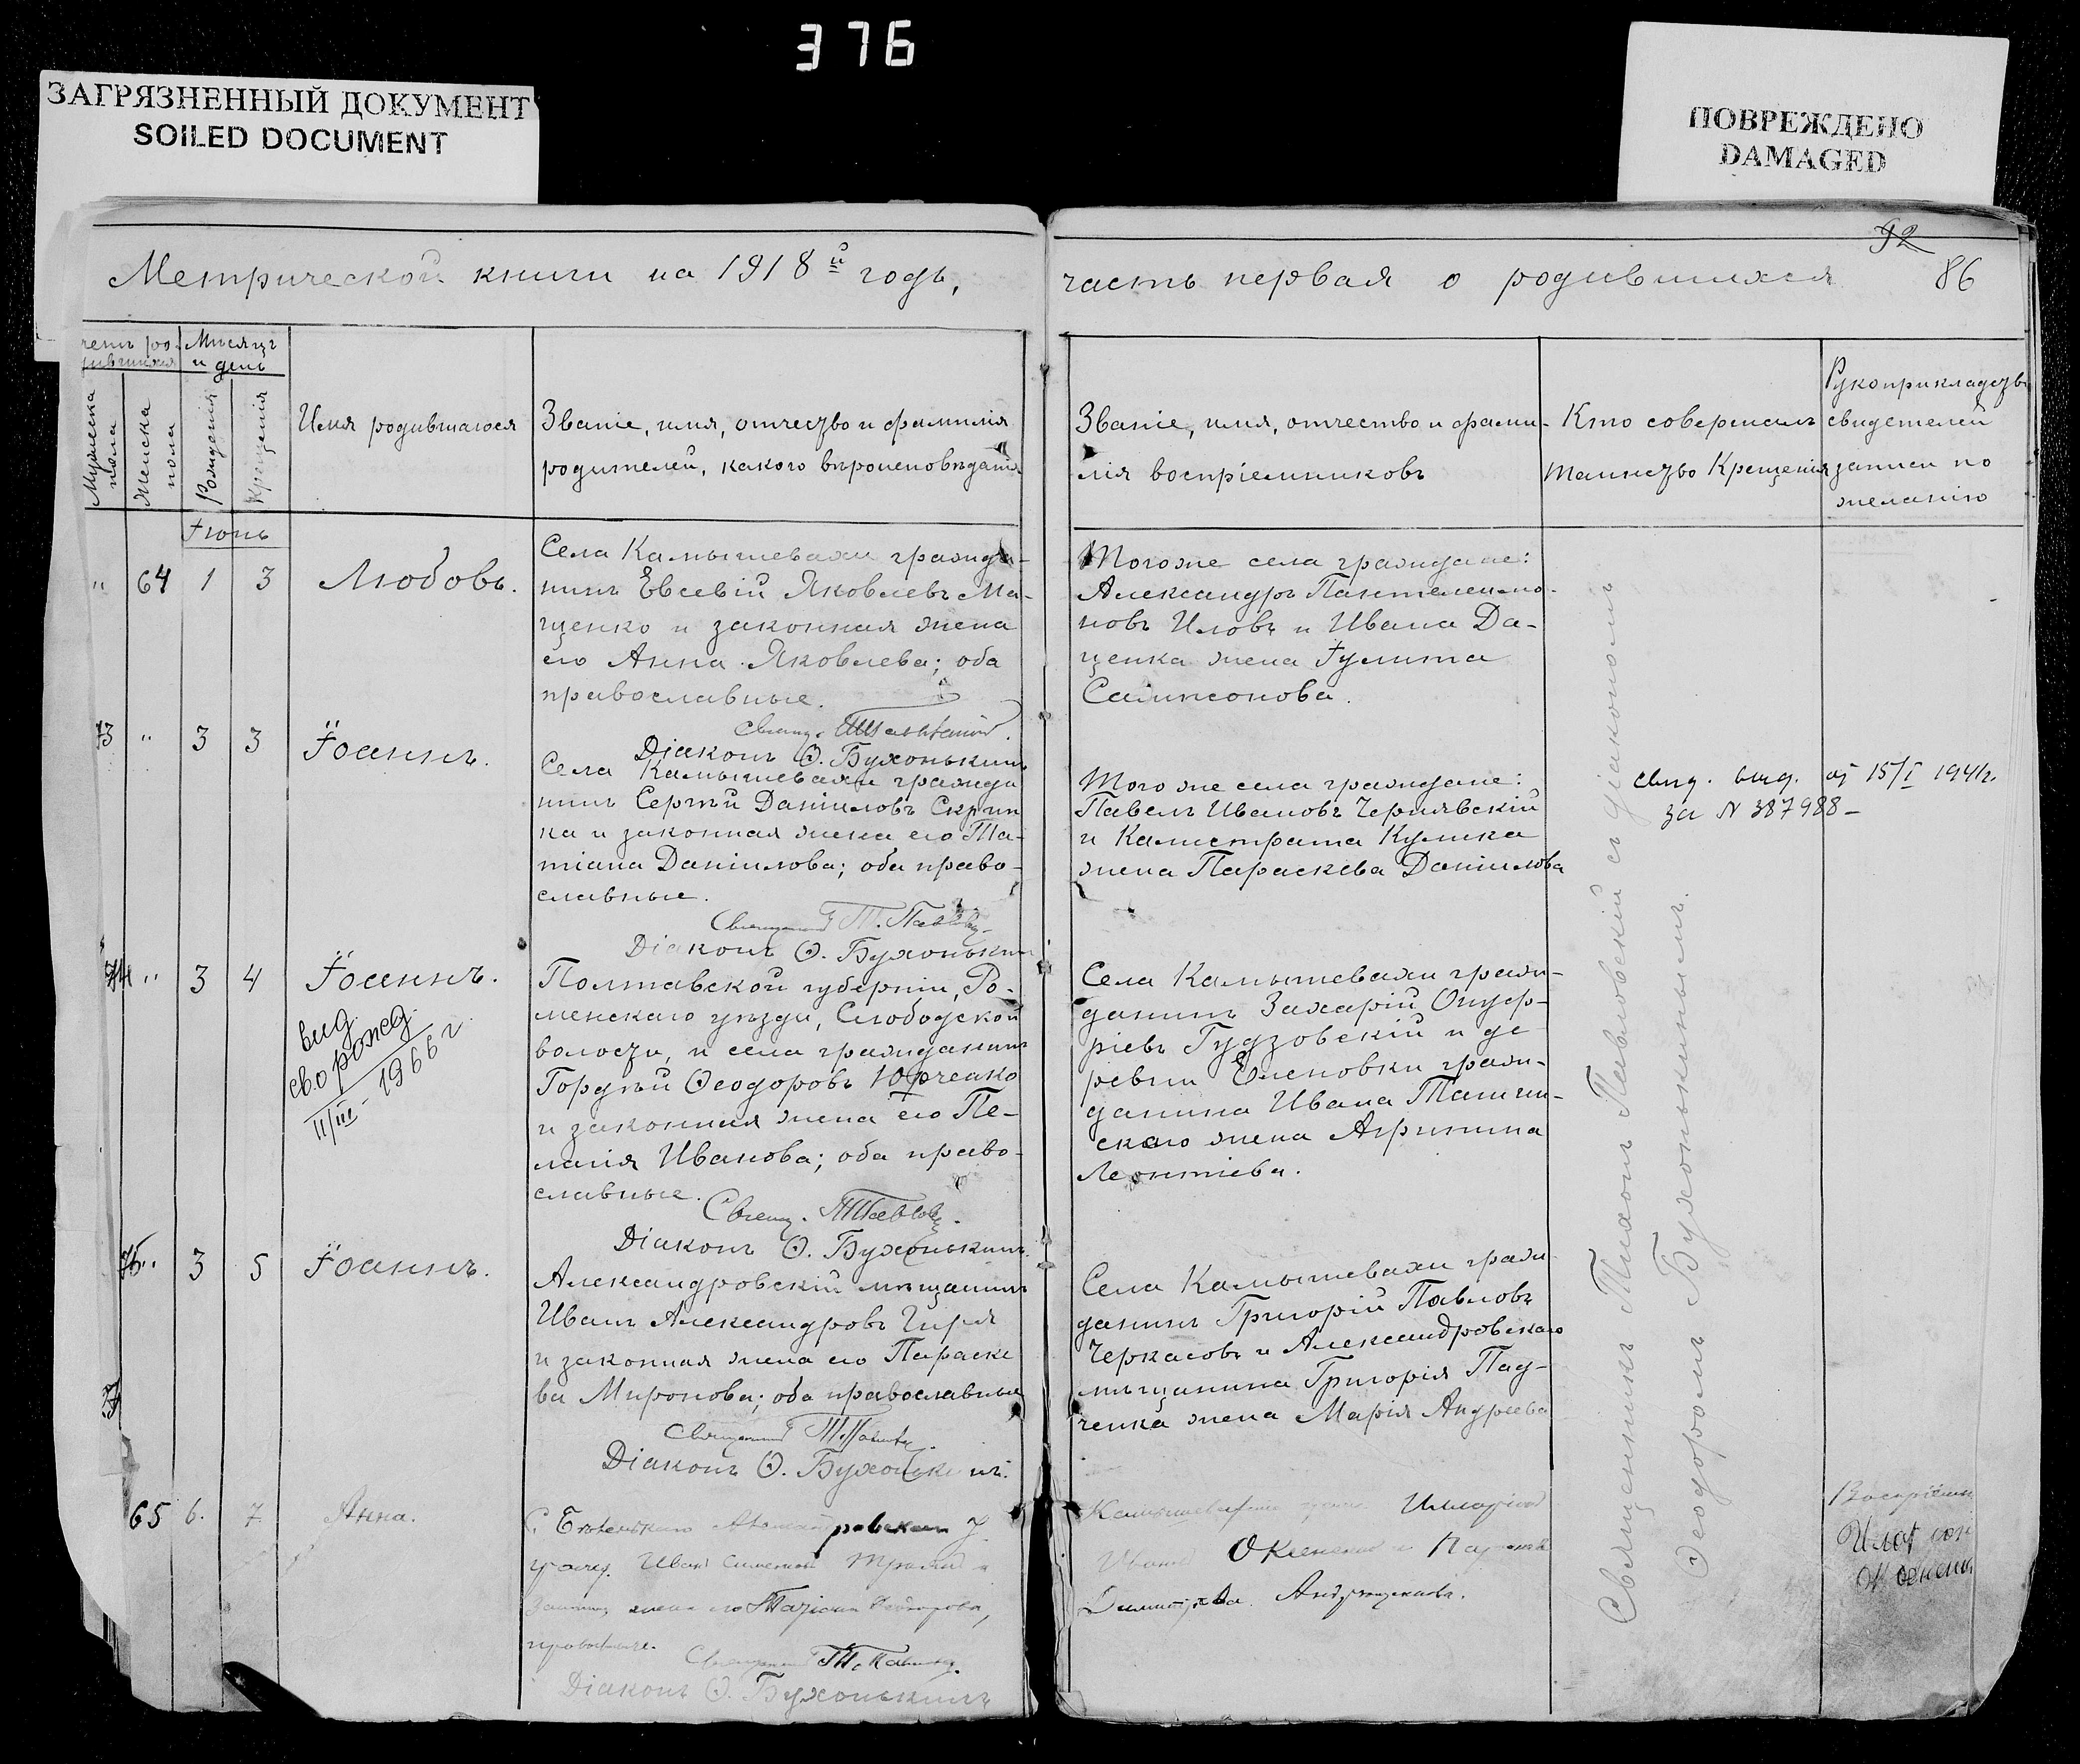 376
ЗАГРЯЗНЕННЫЙ ДОКУМЕНТ
SOILED DOCUMENT
ПОВРЕЖДЕНО
DAMAGED
Метрической книги на 1918й годъ,
часть первая о родившихся
92
86
Мѣсяцъ
и день
Мужеска пола
Женска пола
Рожденія
Крещенія
Имя родившагося
Званіе, имя, отчество и фамилія
родителей, какого вѣроисповѣданія
Званіе, имя, отчество и фами-
лія воспріемниковъ
Кто совершалъ
таинство Крещенія
Рукоприкладство
свидетелей
записи по
желанію
Іюнь
" 64 1 3 Любовь.
Села Камышевахи гражда-
нинъ Евсевій Яковлевъ Ма-
ценко и законная жена
его Анна Яковлева; оба
православные.
Діаконъ Ѳ. Бухонькинъ
Тогоже села граждане:
Александръ Пантелеимо-
новъ Иловъ и Ивана Да-
ценка жена Іулита
Сампсонова.
73 " 3 3 Іоаннъ.
Села Камышевахи гражда
нинъ Сергѣй Даніиловъ Скрып
ка и законная жена его Та-
тіана Даніилова; оба право-
славные.
Священникъ Т. Павловскій
Діаконъ Ѳ. Бухонькинъ
Того же села граждане:
Павелъ Ивановъ Чернявскій
и Калистрата Кулика
жена Параскева Даніилова
свид. выд. 15/I 1941г.
за N 387988-
74 " 3 4 Іоаннъ.
вид.
св.о рожд.
11/III - 1966 г.
Полтавской губерніи, Ро-
менскаго уѣзда, Слободской
волости, и села гражданинъ
Гордѣй Ѳеодоровъ Юрченко
и законная жена его Пе-
лагія Иванова; оба право-
славные.
Свящ. Т. Павловскій.
Діаконъ Ѳ. Бухонькинъ.
Села Камышевахи граж-
данинъ Захарій Онуф-
ріевъ Гудзовскій и де
ревни Еленовки граж-
данина Ивана
скаго жена Агрипина
Леонтіева.
75 " 3 5 Іоаннъ.
Александровскій мѣщанинъ
Иванъ Александровъ Гиря
и законная жена его Параске
ва Миронова; оба православные
Священникъ Т. Павловскій.
Діаконъ Ѳ. Бухонькинъ.
Села Камышевахи граж
данинъ Григорій Павловъ
Черкасовъ и Александровскаго
мѣщанина Григорія Пад-
ченка жена Марія Андреева
65 6. 7. Анна.
Иванъ
жена его
Священникъ Т. Павловскій.
Діаконъ Ѳ. Бухонькинъ
Димитріева.
Священникъ Тихонъ Павловскій съ діакономъ
Ѳеодоромъ Бухонькинымъ.